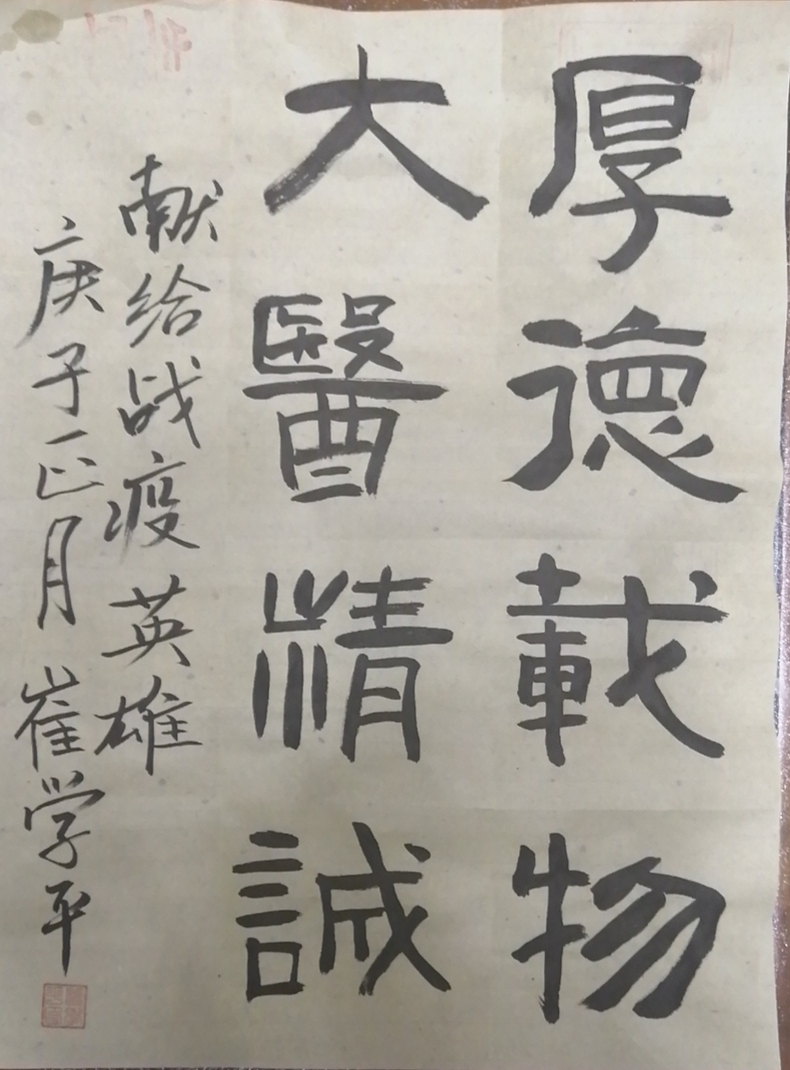 厚德載物
大醫精誠
献给战疫英雄
庚子正月 崔学平